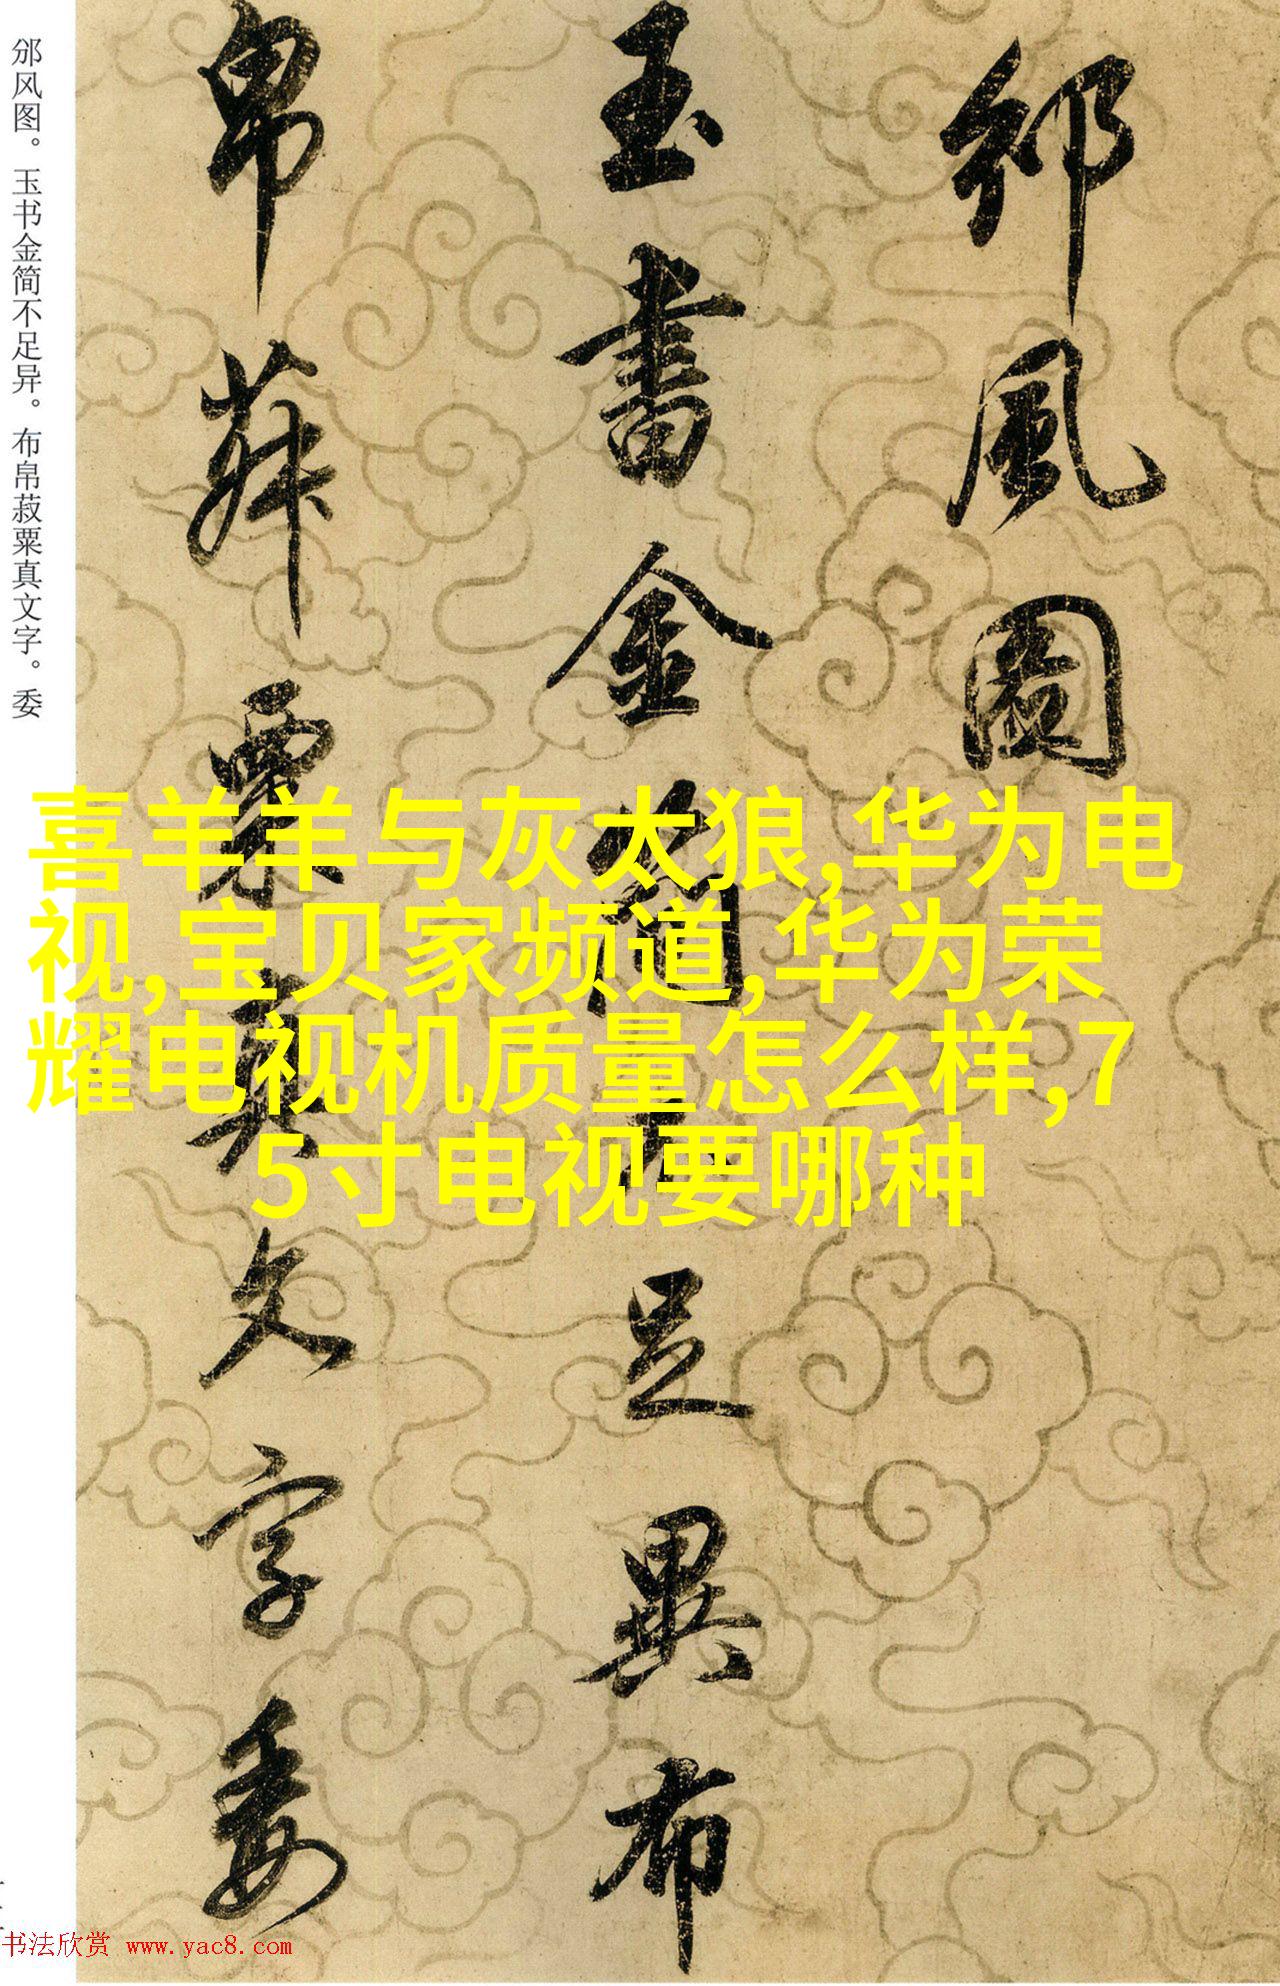 邠風圖
玉書金簡不足異布
帛菽粟真文字委
邠风图。玉书金简不足异。布帛菽粟真文字。委
喜羊羊与灰太狼,华为电
视,宝贝家频道,华为荣
耀电视机质量怎么样,7
5寸电视要哪种
书法欣赏 www.yac8.com